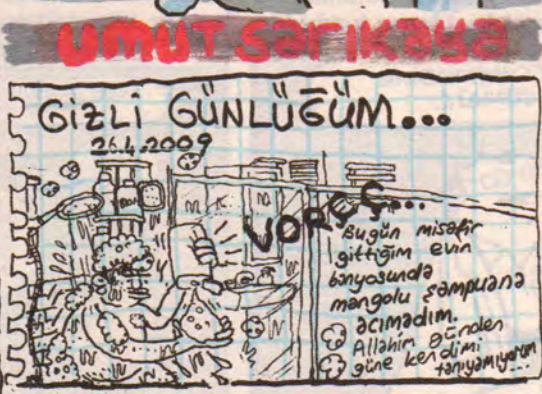 umut sarıkaya
GİZLİ GÜNLÜĞÜM...
26.4.2009
VORCÇ...
Bugün misafir
gittiğim evin
banyosunda
mangolu şampuana
acımadım.
Allahım günden
güne kendimi
tanıyamıyorum...